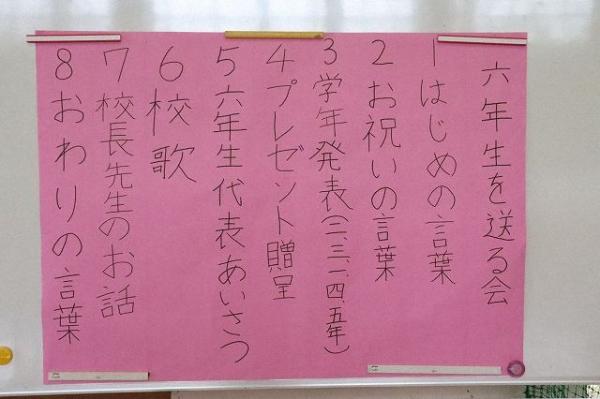 六年生を送る会
1はじめの言葉
2お祝いの言葉
3学年発表(二、三、一、四、五年)
4プレゼント贈呈
5六年生代表あいさつ
6校歌
7校長先生のお話
8おわりの言葉